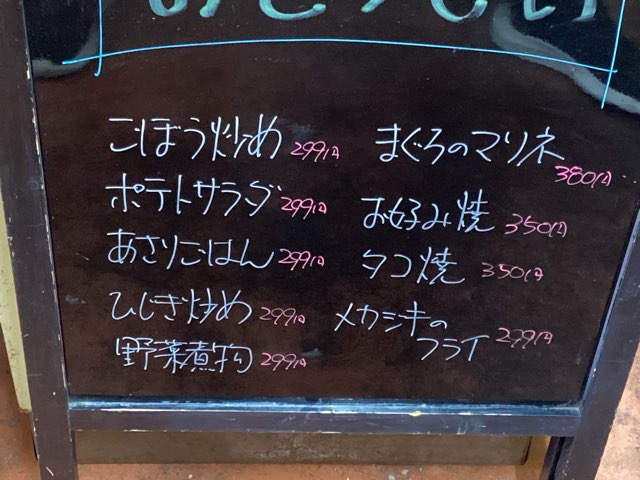 ごぼう炒め 299円
ポテトサラダ 299円
あさりごはん 299円
ひじき炒め 299円
野菜煮物 299円
まぐろのマリネ
380円
お好み焼 350円
タコ焼 350円
メカジキの
フライ 299円